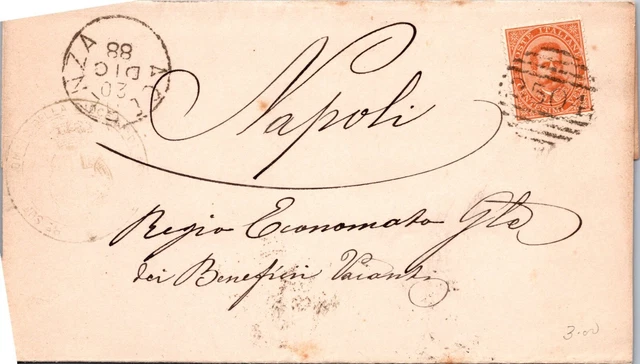 POSTE ITALIANE
20
DIC
88
Napoli
Regio Economato Gle
dei Benefizi Vacanti
3.00